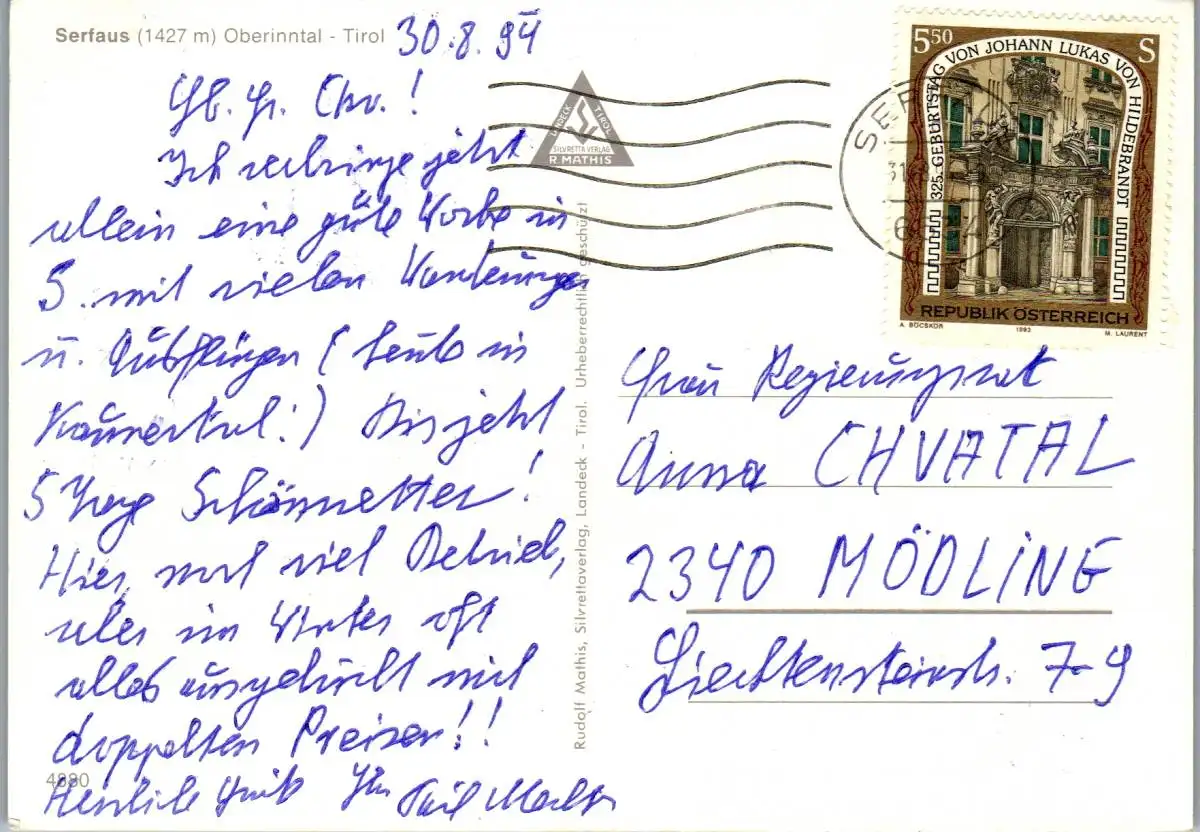 Serfaus (1427 m) Oberinntal - Tirol
30.8.94
Lb. Fr. Chv.!
Ich verbringe jetzt
allein eine gute Woche in
S. mit vielen Wanderungen
u. Ausflügen (heute in
Kaunertal!) Bis jetzt
5 Tage Schönwetter!
Hier noch viel Betrieb,
aber im Winter oft
alles ausgebucht mit
doppelten Preisen!!
Herzliche Grüße Ihr
4880
LANDECK TIROL
SILVRETTA VERLAG
R. MATHIS
Rudolf Mathis, Silvrettaverlag, Landeck - Tirol. Urheberrechtlich geschützt
325. GEBURTSTAG VON JOHANN LUKAS VON HILDEBRANDT
550 S
REPUBLIK ÖSTERREICH
A. BÖCSKÖR 1993 M. LAURENT
Frau Regierungsrat
Anna CHVATAL
2340 MÖDLING
Liechtensteinstr. 7-9